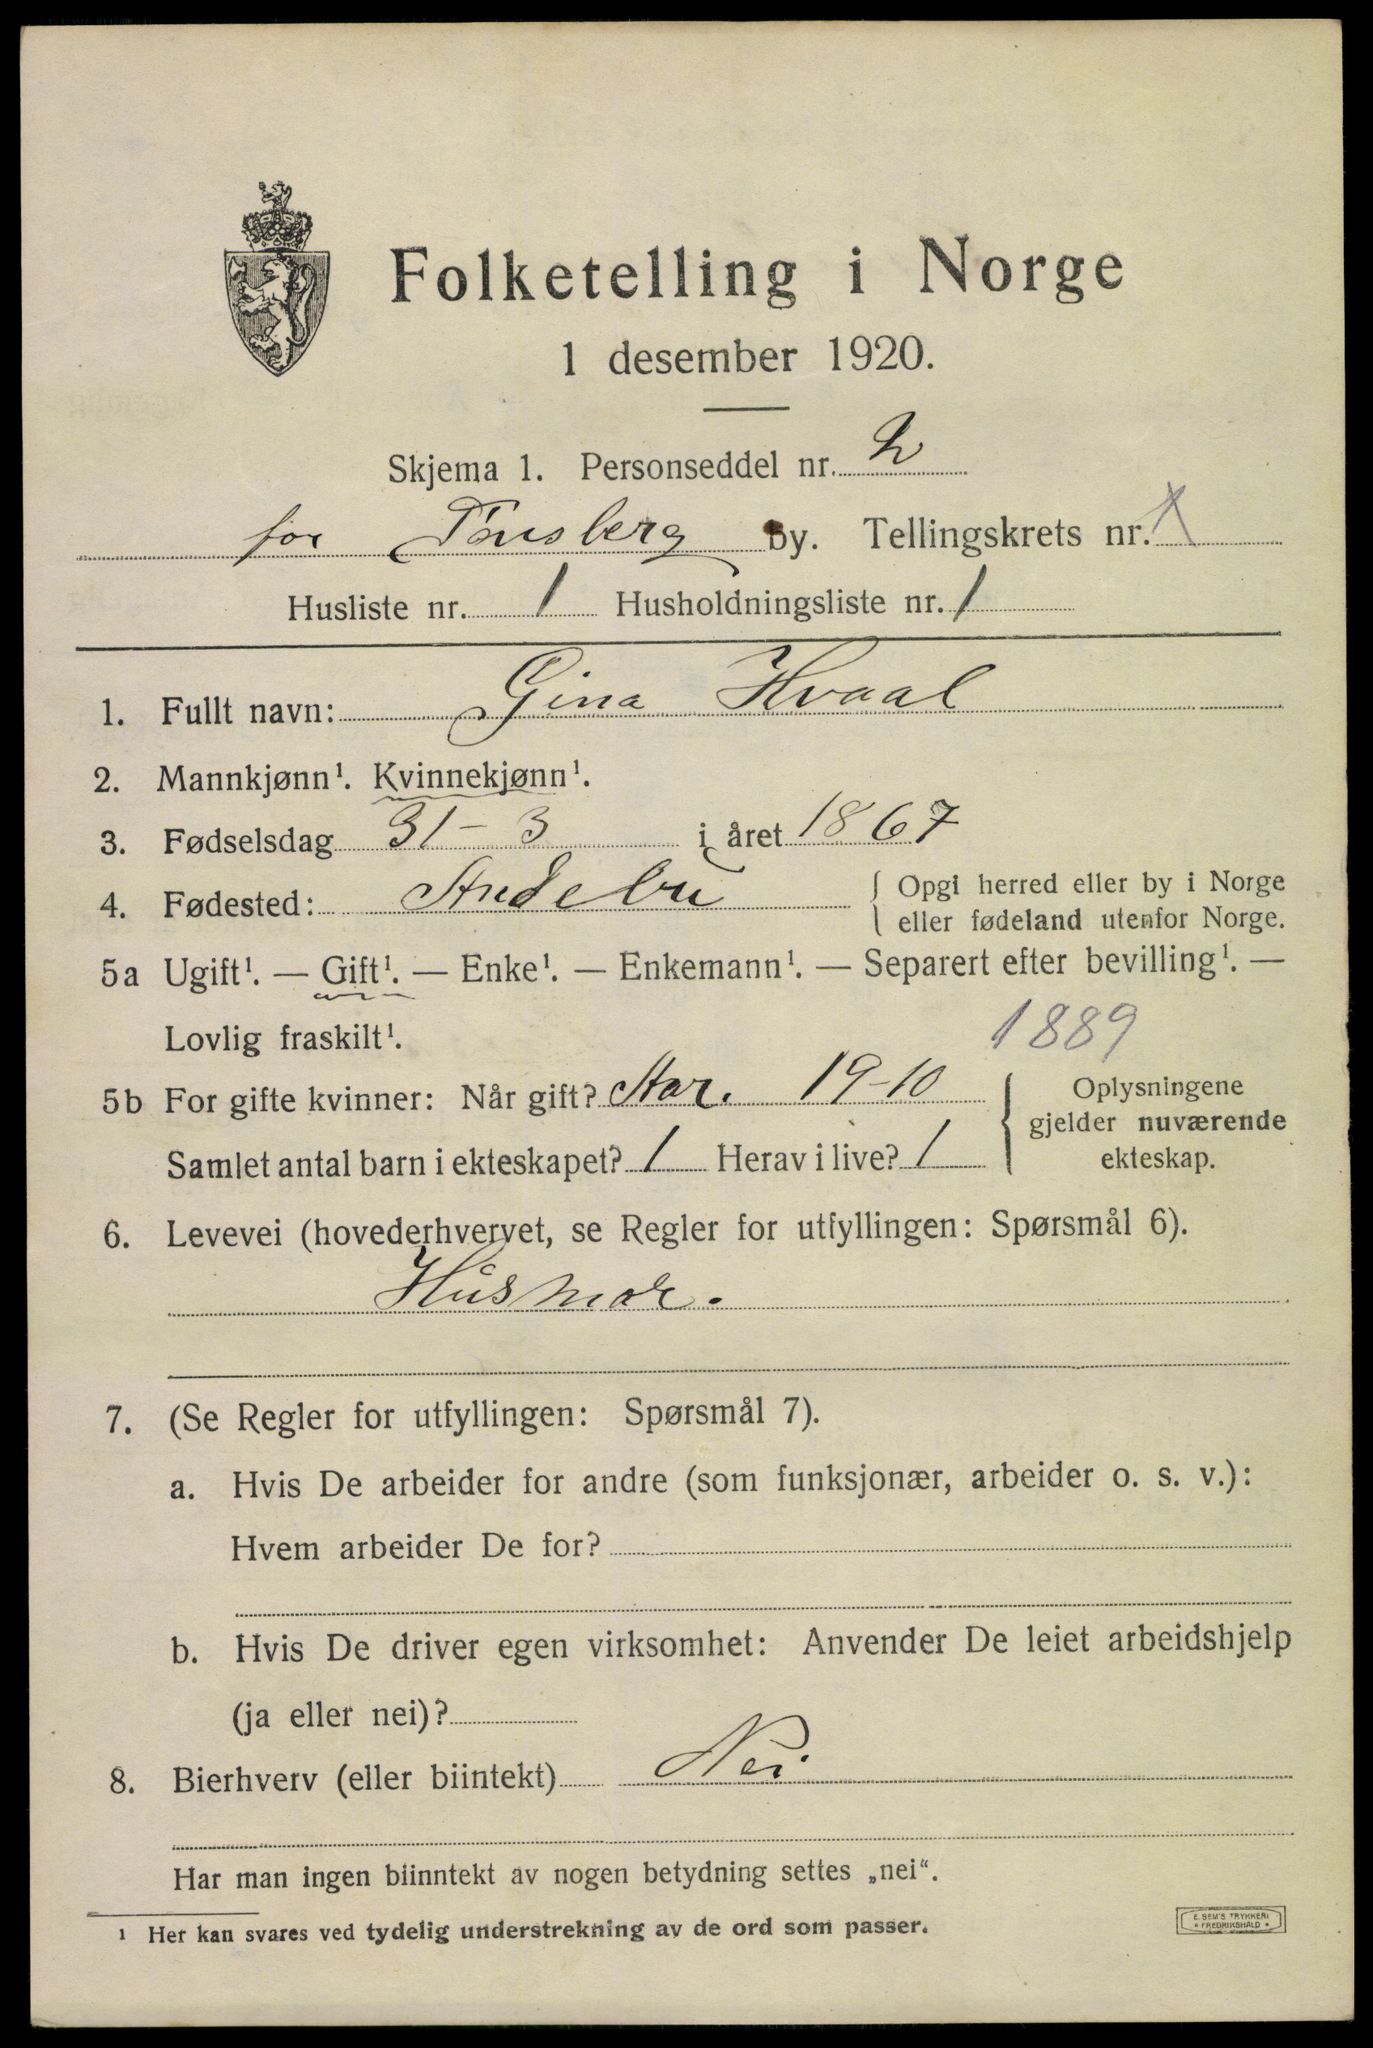 Folketelling i Norge
1 desember 1920.
Skjema 1. Personseddel nr. 2
for Tønsberg By. Tellingskrets nr.
Husliste nr. 1 Husholdningsliste nr. 1
1. Fullt navn: Gina Hvaal
2. Mannkjønn¹. Kvinnekjønn¹.
3. Fødselsdag 31-3 i året 1867
4. Fødested: Andebu { Opgi herred eller by i Norge
eller fødeland utenfor Norge.
5a Ugift¹. — Gift¹. — Enke¹. — Enkemann¹. — Separert efter bevilling¹. —
Lovlig fraskilt¹.
1889
5b For gifte kvinner: Når gift? Aar. 19-10 { Oplysningene
gjelder nuværende
Samlet antal barn i ekteskapet? 1 Herav i live? 1 ekteskap.
6. Levevei (hovederhvervet, se Regler for utfyllingen: Spørsmål 6).
Husmor.
7. (Se Regler for utfyllingen: Spørsmål 7).
a. Hvis De arbeider for andre (som funksjonær, arbeider o. s. v.):
Hvem arbeider De for?
b. Hvis De driver egen virksomhet: Anvender De leiet arbeidshjelp
(ja eller nei)?
8. Bierhverv (eller biintekt) Nei
Har man ingen biinntekt av nogen betydning settes „nei“.
¹ Her kan svares ved tydelig understrekning av de ord som passer.
E. SEM'S TRYKKERI
* FREDRIKSHALD *